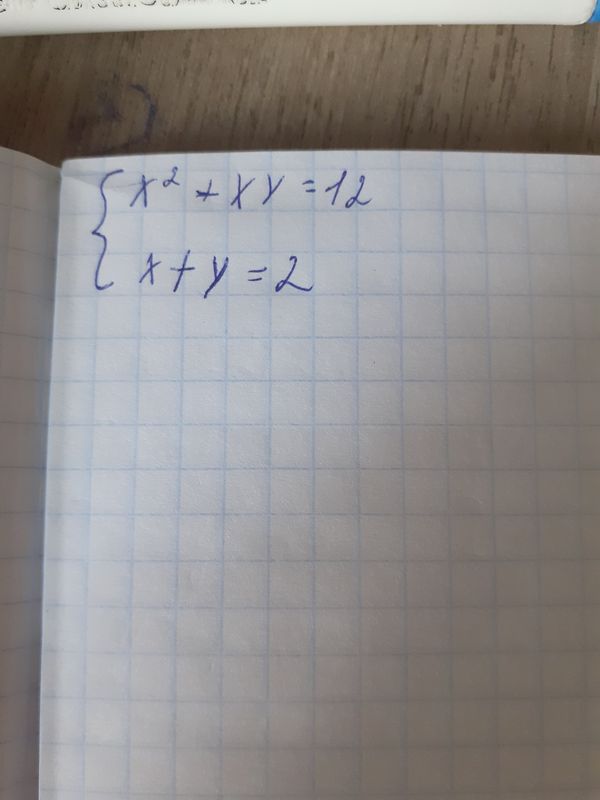 { x² + xy = 12
x + y = 2